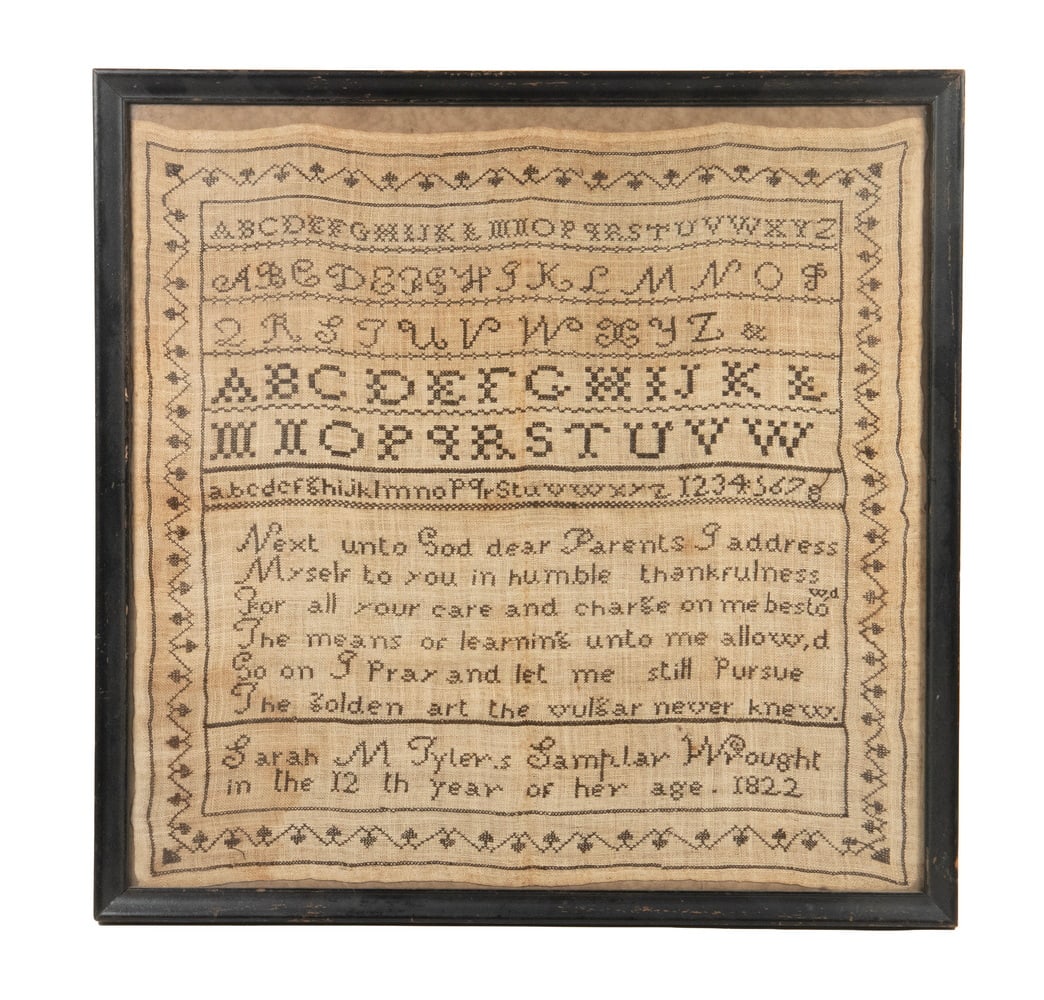 ABCDEFGHIJKLMNOPQRSTUVWXYZ
ABCDEFGHIJKLMNOP
QRSTUVWXYZ &
ABCDEFGHIJKL
MNOPQRSTUVW
abcdefghijklmnopqrstuvwxyz 12345678
Next unto God dear Parents I address
Myself to you in humble thankfulness
For all your care and charge on me bestowd
The means of learning unto me allow,d
Go on I Pray and let me still Pursue
The golden art the vulgar never knew.
Sarah M Tyler,s Samplar Wrought
in the 12 th year of her age. 1822